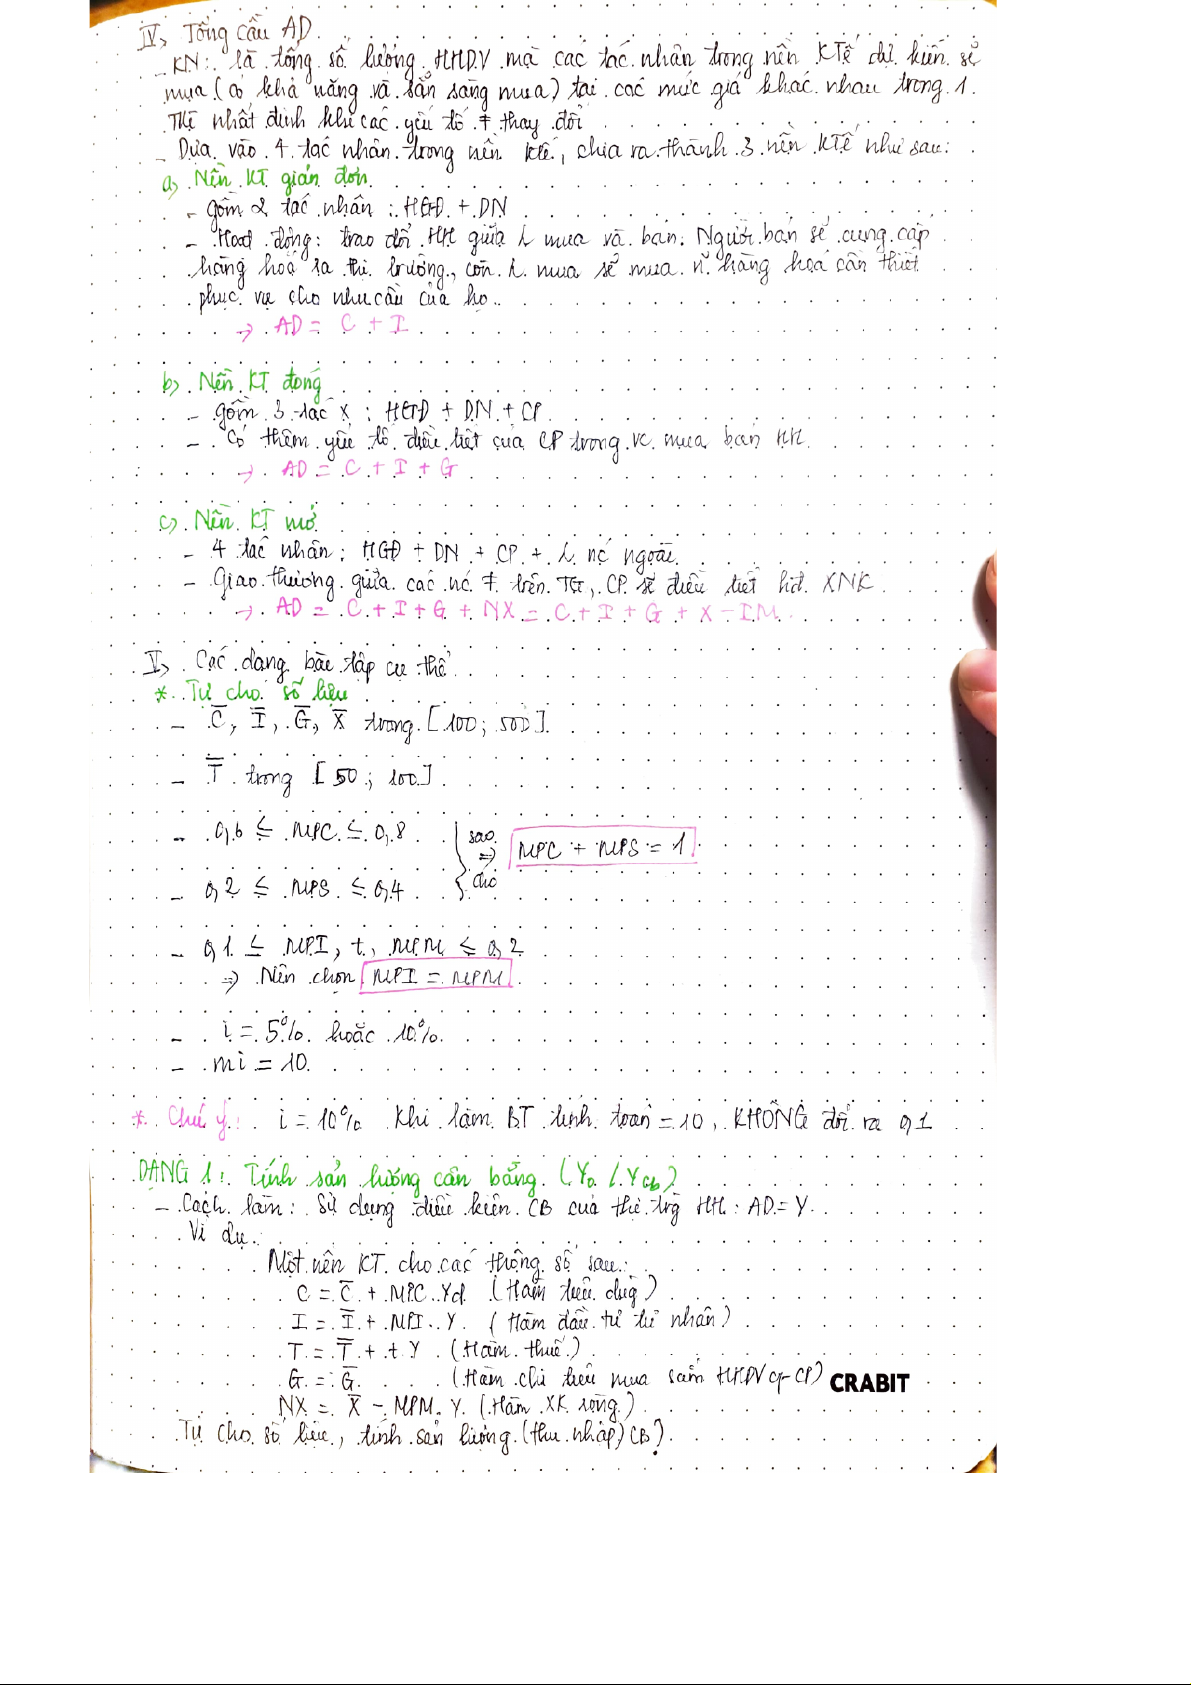 IV, Tổng cầu AD.
- KN: là tổng số lượng HHDV mà các tác nhân trong nền KTế dự kiến sẽ
mua (có khả năng và sẵn sàng mua) tại các mức giá khác nhau trong 1
TKì nhất định khi các yếu tố ≠ thay đổi
- Dựa vào 4 tác nhân trong nền Ktế, chia ra thành 3 nền KTế như sau:
a) Nền KT giản đơn
- gồm 2 tác nhân: HGĐ + DN
- Hoạt động: trao đổi HH giữa ng mua và bán. Người bán sẽ cung cấp
hàng hoá ra thị trường, còn ng mua sẽ mua n~ hàng hoá cần thiết
phục vụ cho nhu cầu của họ.
→ AD = C + I
b) Nền KT đóng
- gồm 3 tác x: HGĐ + DN + CP
- Có thêm yếu tố điều tiết của CP trong vc mua bán HH.
→ AD = C + I + G
c) Nền KT mở
- 4 tác nhân: HGĐ + DN + CP + ng nc ngoài
- Giao thương giữa các nc ≠ trên TG, CP sẽ điều tiết hđ XNK
→ AD = C + I + G + NX = C + I + G + X - IM
V, Các dạng bài tập cụ thể
* Tự cho số liệu
- C̅, I̅, G̅, X̅ trong [100; 500]
- T̅ trong [50; 100]
- 0,6 ≤ MPC ≤ 0,8
sao cho ⇒ MPC + MPS = 1
- 0,2 ≤ MPS ≤ 0,4
- 0,1 ≤ MPI, t, MPM ≤ 0,2
⇒ Nên chọn MPI = MPM
- i = 5% hoặc 10%
- mi = 10
* Chú ý: i = 10% Khi làm BT tính toán = 10, KHÔNG đổi ra 0,1
DẠNG 1: Tính sản lượng cân bằng (Yo / Ycb)
- Cách làm: Sử dụng điều kiện CB của thị trg HH: AD = Y
Ví dụ:
Một nền KT cho các thông số sau:
C = C̅ + MPC.Yd (Hàm tiêu dùg)
I = I̅ + MPI.Y (Hàm đầu tư tư nhân)
T = T̅ + t.Y (Hàm thuế)
G = G̅ (Hàm chi tiêu mua sắm HHDV of CP) CRABIT
NX = X̅ - MPM.Y (Hàm XK ròng)
Tự cho số liệu, tính sản lượng (thu nhập) CB?